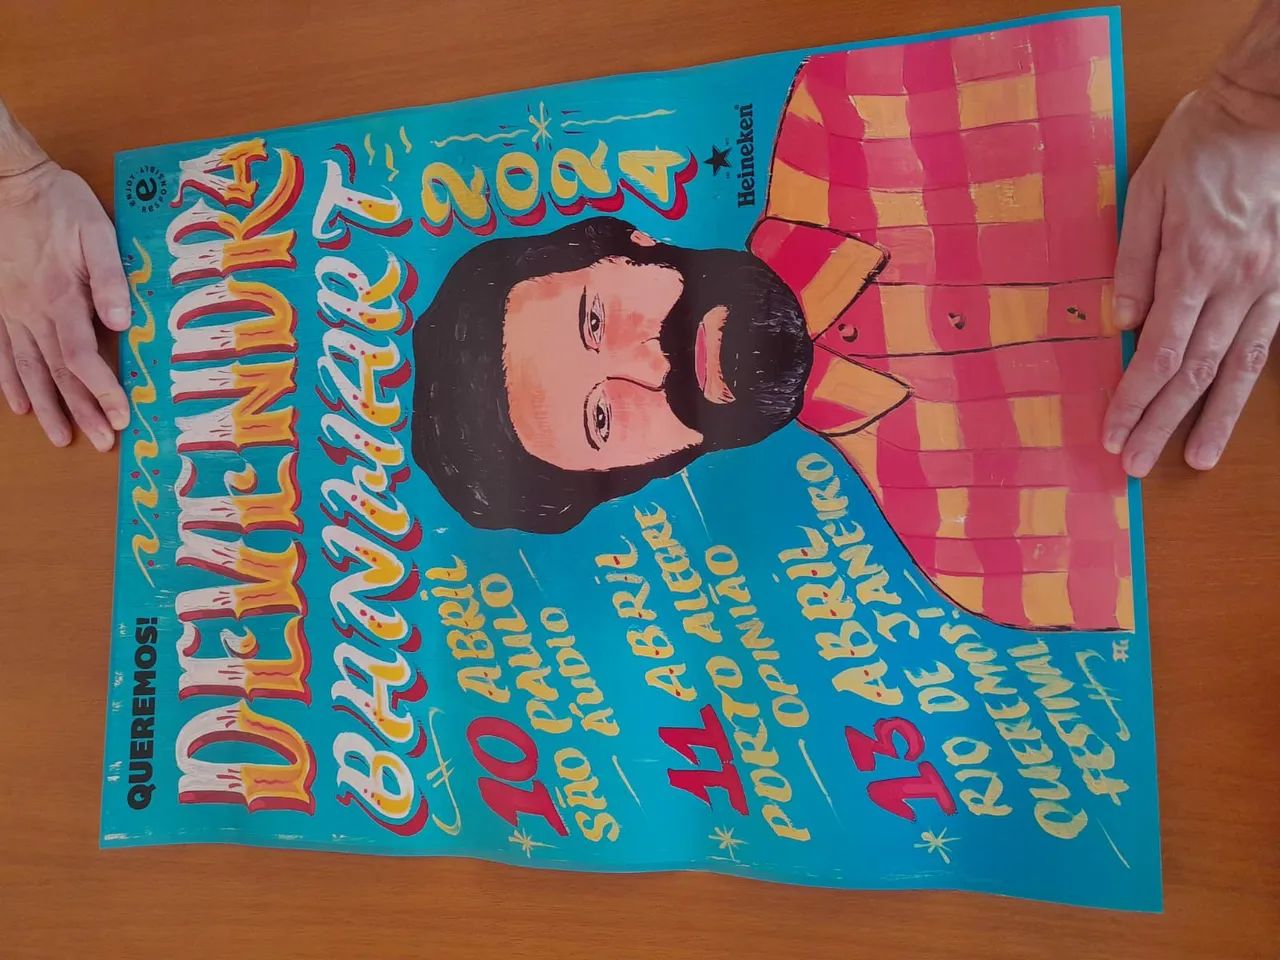 QUEREMOS!
ENJOY HEINEKEN RESPONSIBLY
DEVENDRA
BANHART
2024
10 ABRIL
SÃO PAULO
ÁUDIO
11 ABRIL
PORTO ALEGRE
OPINIÃO
13 ABRIL
RIO DE JANEIRO
QUEREMOS!
FESTIVAL
Heineken®